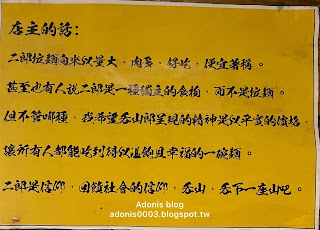 店主的話:
二郎拉麵向來以量大、肉多、好吃、便宜著稱。
甚至也有人說二郎是一種獨立的食物,而不是拉麵。
但不管哪種,我希望吞山郎呈現的精神是以平實的價格,
讓所有人都能吃到得以溫飽且幸福的一碗麵。
二郎是信仰,回饋社會的信仰,吞山、吞下一座山吧。
Adonis blog
adonis0003.blogspot.tw